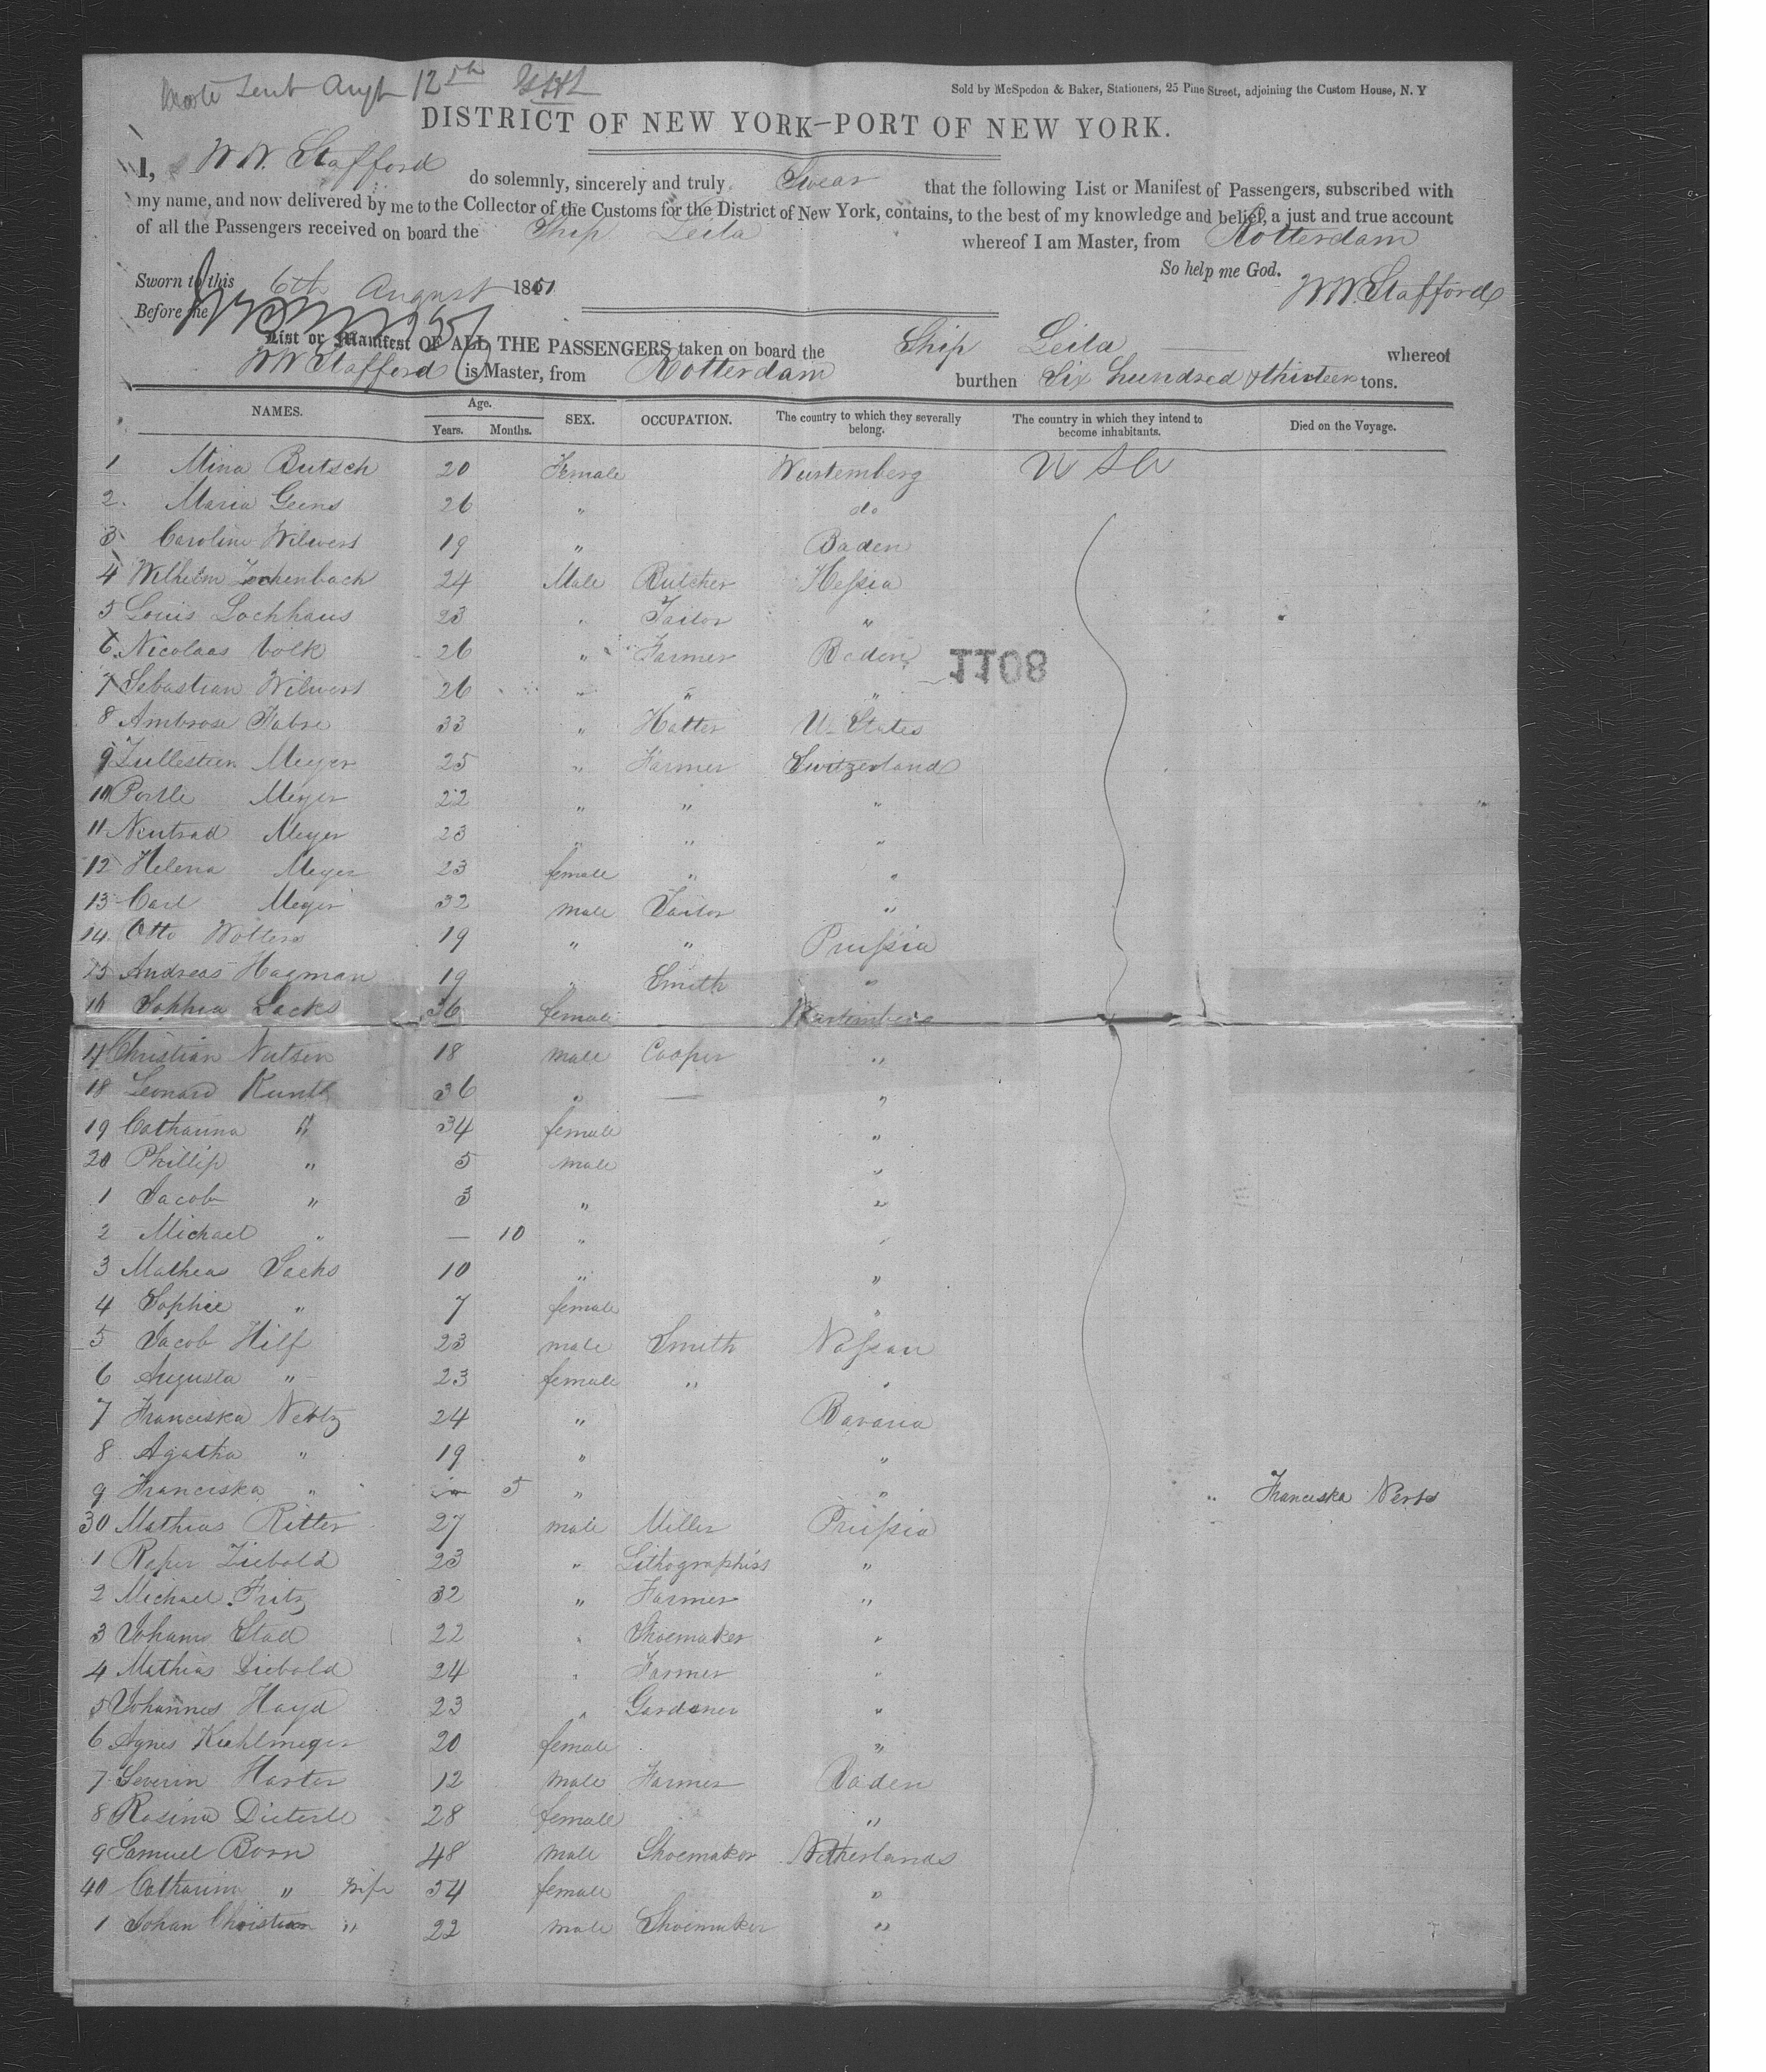 Sent Augt 12th
Sold by McSpedon & Baker, Stationers, 25 Pine Street, adjoining the Custom House, N. Y
DISTRICT OF NEW YORK–PORT OF NEW YORK.
I, W W. Stafford do solemnly, sincerely and truly Swear that the following List or Manifest of Passengers, subscribed with
my name, and now delivered by me to the Collector of the Customs for the District of New York, contains, to the best of my knowledge and belief, a just and true account
of all the Passengers received on board the Ship Leila whereof I am Master, from Rotterdam
So help me God.
Sworn to this 6th August 1851 W W. Stafford
Before me
List or Manifest OF ALL THE PASSENGERS taken on board the Ship Leila whereof
W W Stafford is Master, from Rotterdam burthen Six hundred & thirteen tons.
NAMES. Age. Years. Months. SEX. OCCUPATION. The country to which they severally belong. The country in which they intend to become inhabitants. Died on the Voyage.
1 Mina Butsch 20 Female Wurtemberg U S A
2 Maria Geens 26 " do
3 Caroline Wilwert 19 " Baden
4 Wilhelm Zochenbach 24 Male Butcher Heſsia
5 Louis Lochhaus 23 " Tailor "
6 Nicolaas Volk 26 " Farmer Baden
1108
7 Sebastian Wilwert 26 " " "
8 Ambrose Fabre 33 " Hatter U. States
9 Meyer 25 " Farmer Switzerland
10 Portle Meyer 22 " " "
11 Meyer 23 " " "
12 Helena Meyer 23 female " "
13 Carl Meyer 32 male Tailor "
14 Otto Wolters 19 " " Pruſsia
15 Andreas Hagman 19 " Smith "
16 Sophia Sacks 36 female Wurtemberg
17 Christian Nutsen 18 male Cooper "
18 Leonard Kunth 36 " — "
19 Catharina " 34 female "
20 Phillip " 5 male "
1 Jacob " 3 " "
2 Michael " — 10 " "
3 Mathias Sacks 10 " "
4 Sophie " 7 female "
5 Jacob Hilf 23 male Smith Naſsau
6 Augusta " 23 female " "
7 Franciska Nertz 24 " Bavaria
8 Agatha " 19 " "
9 Franciska " — 5 " " Franciska Nertz
30 Mathias Ritter 27 male Miller Pruſsia
1 Ziebold 23 " Lithographiss "
2 Michael Fritz 32 " Farmer "
3 Johann Stall 22 " Shoemaker "
4 Mathias Diebold 24 " Farmer "
5 Johannes Hayd 23 " Gardener "
6 Agnes Kuhlmeyer 20 female "
7 Severin Harter 12 male Farmer Baden
8 Rosina Dieterle 28 female "
9 Samuel Born 48 male Shoemaker Netherlands
40 Catharina " Wife 54 female "
1 Johan Christian " 22 male Shoemaker "